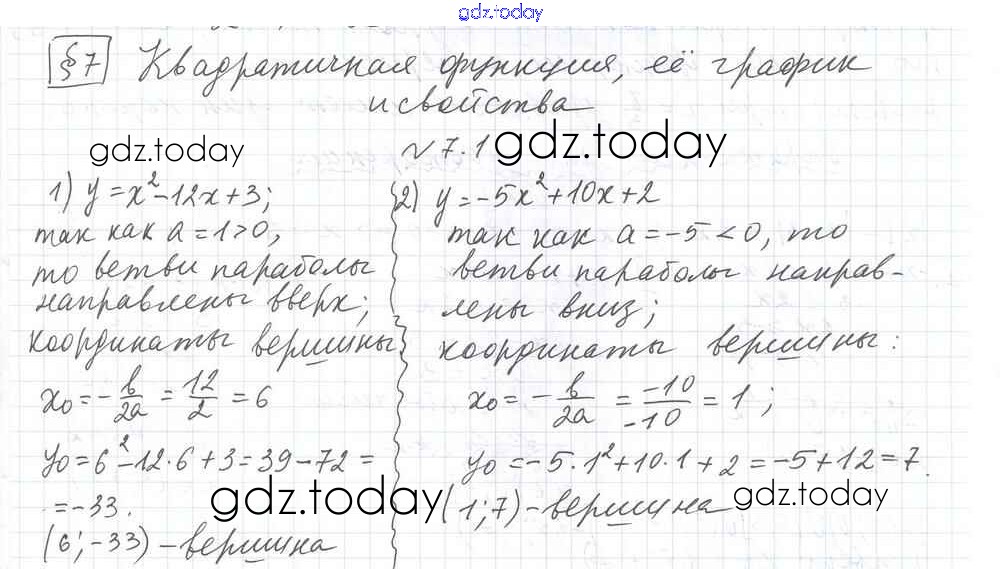 gdz.today
§7 Квадратичная функция, её график
и свойства
gdz.today
№7.1 gdz.today
1) y = x² - 12x + 3;
так как a = 1 > 0,
то ветви параболы
направлены вверх;
координаты вершины:
x₀ = - b/2a = 12/2 = 6
y₀ = 6² - 12·6 + 3 = 39 - 72 =
= -33.
gdz.today
(6; -33) - вершина
2) y = -5x² + 10x + 2
так как a = -5 < 0, то
ветви параболы направ-
лены вниз;
координаты вершины:
x₀ = - b/2a = -10/-10 = 1;
y₀ = -5·1² + 10·1 + 2 = -5 + 12 = 7.
(1; 7) - вершина
gdz.today